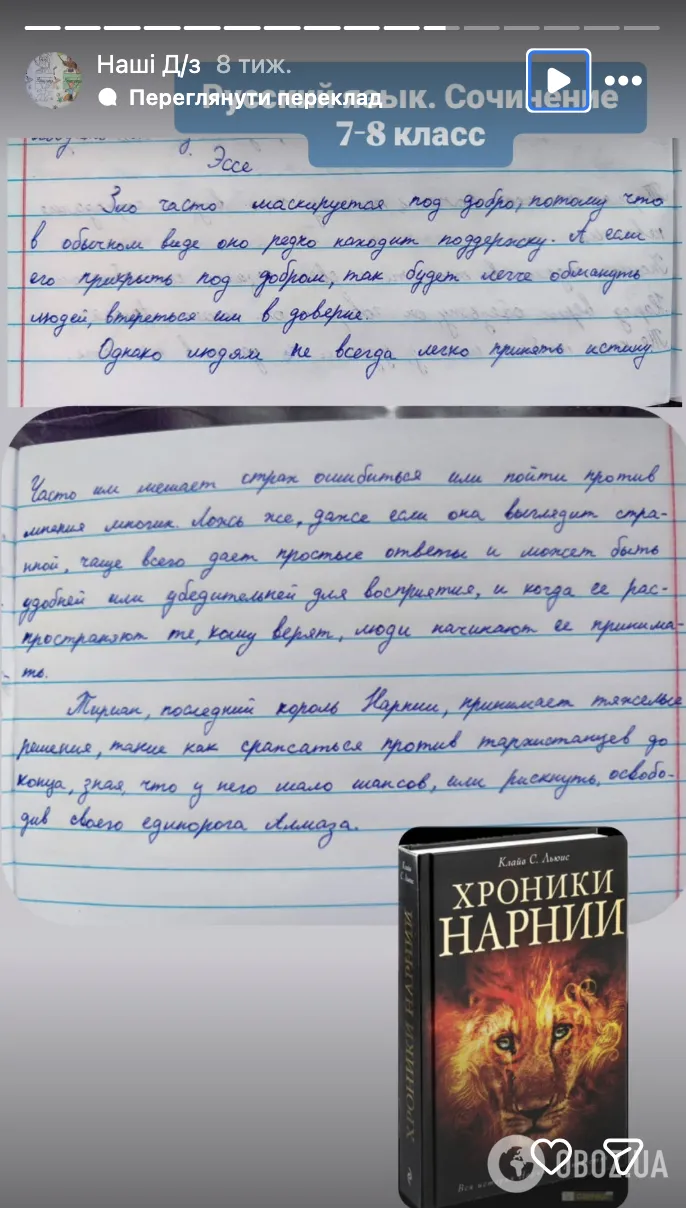 Наші Д/з 8 тиж.
Переглянути переклад
Русский язык. Сочинение
7-8 класс
Эссе
Зло часто маскируется под добро, потому что
в обычном виде оно редко находит поддержку. А если
его прикрыть под добром, так будет легче обмануть
людей, втереться им в доверие.
Однако людям не всегда легко принять истину.
Часто им мешает страх ошибиться или пойти против
мнения многих. Ложь же, даже если она выглядит стра-
нной, чаще всего дает простые ответы и может быть
удобней или убедительней для восприятия, и когда ее рас-
пространяют те, кому верят, люди начинают ее принима-
ть.
Тириан, последний король Нарнии, принимает тяжелые
решения, такие как сражаться против тархистанцев до
конца, зная, что у него мало шансов, или рискнуть, освобо-
див своего единорога Алмаза.
Клайв С. Льюис
ХРОНИКИ
НАРНИИ
ХРОНИКИ НАРНИИ
OBOZ.UA